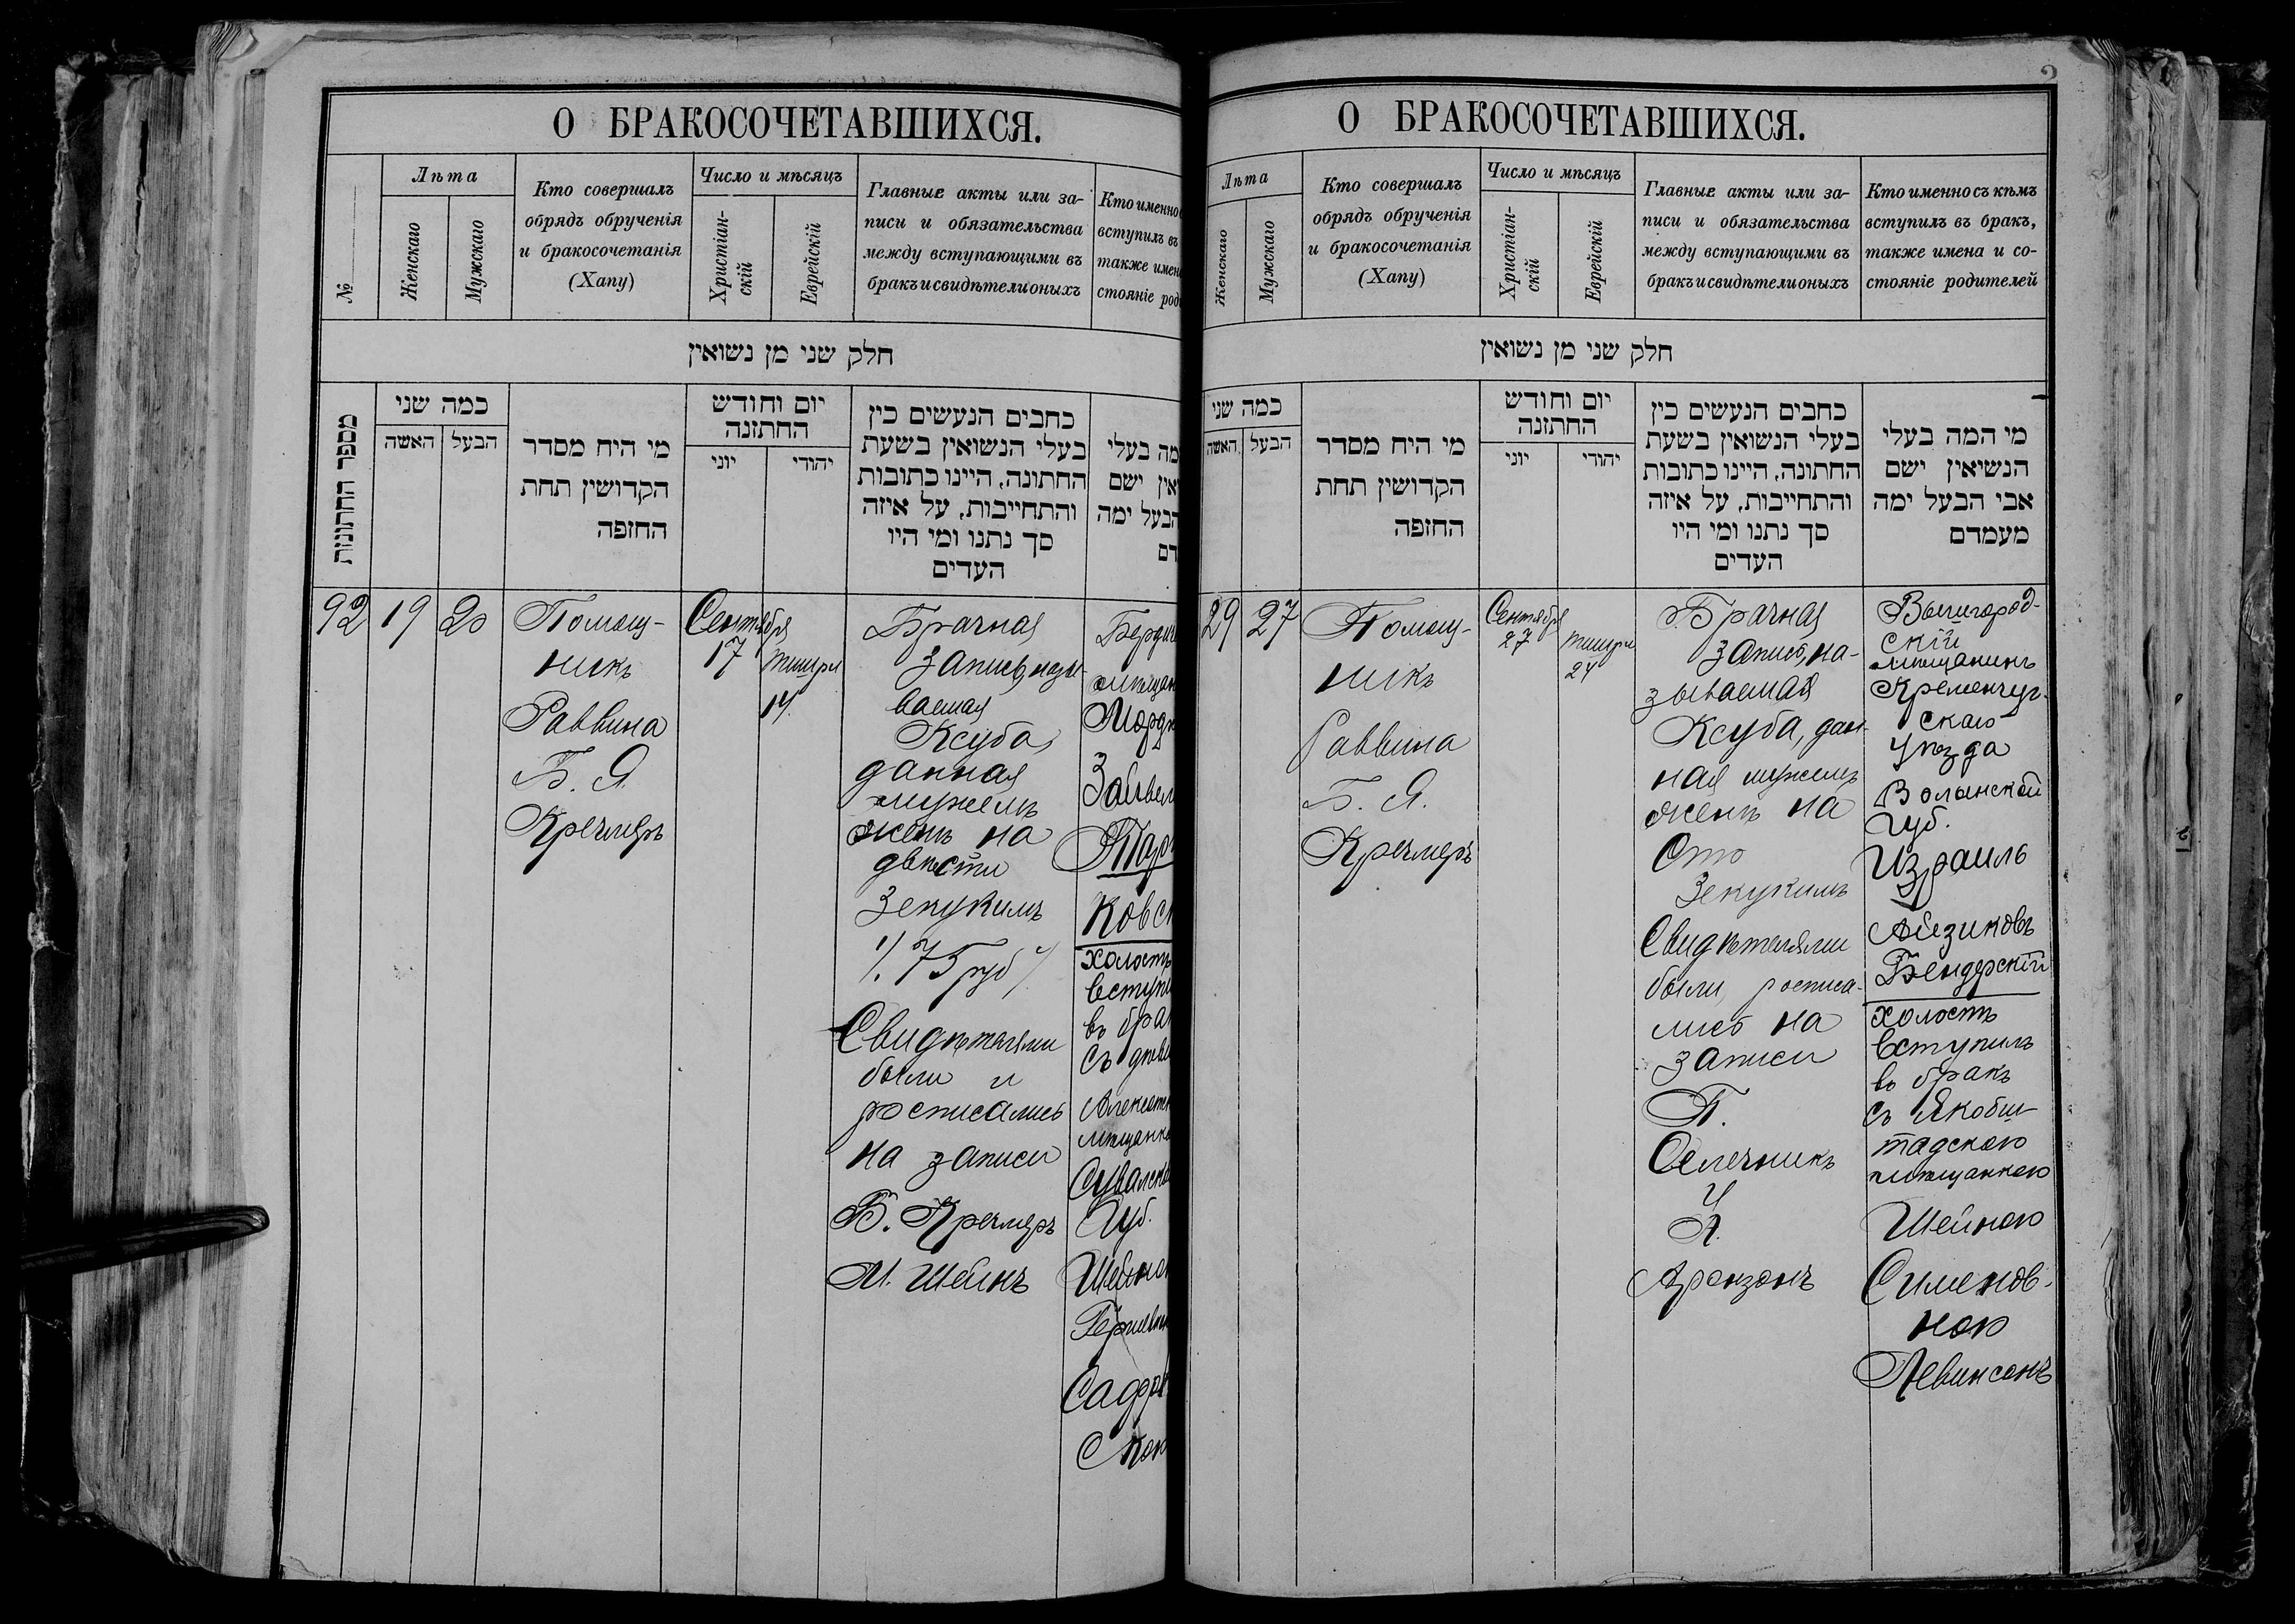 О БРАКОСОЧЕТАВШИХСЯ.
№
Лѣта
Женскаго
Мужскаго
Кто совершалъ
обрядъ обрученія
и бракосочетанія
(Хапу)
Число и мѣсяцъ
Христіан-
скій
Еврейскій
Главные акты или за-
писи и обязательства
между вступающими въ
бракъ и свидѣтели оныхъ
Кто именно
вступилъ въ
также имен
стояніе род
חלק שני מן נשואין
מספר החתונות
כמה שני
האשה
הבעל
מי היח מסדר
הקדושין תחת
החזפה
יום וחודש
החתזנה
יוני
יהודי
כחבים הנעשים כין
בעלי הנשואין בשעת
החתונה, היינו כתובות
והתחייבות, על איזה
סך נתנו ומי היו
העדים
מה בעלי
אין ישם
הבעל ימה
דם
92
19
20
Помощ-
никъ
Раввина
Б. Я.
Кречмеръ
Сентября
17
Тишри
14
Брачная
запись, назы-
ваемая
Ксуба,
данная
мужемъ
женѣ на
двѣсти
Зекукимъ
/. 75 руб /.
Свидѣтелями
были и
росписались
на записи
В. Кречмеръ
М. Шеинъ
Бердич
мѣщан
Мордх
Зайвел
ковск
холостъ
вступи
въ бра
съ дѣви
мѣщанк
Сувалско
Губ.
Шейно
Сафр
скою
2
О БРАКОСОЧЕТАВШИХСЯ.
Лѣта
Женскаго
Мужскаго
Кто совершалъ
обрядъ обрученія
и бракосочетанія
(Хапу)
Число и мѣсяцъ
Христіан-
скій
Еврейскій
Главные акты или за-
писи и обязательства
между вступающими въ
бракъ и свидѣтели оныхъ
Кто именно съ кѣмъ
вступилъ въ бракъ,
также имена и со-
стояніе родителей
חלק שני מן נשואין
כמה שני
האשה
הבעל
מי היח מסדר
הקדושין תחת
החזפה
יום וחודש
החתזנה
יוני
יהודי
כחבים הנעשים כין
בעלי הנשואין בשעת
החתונה, היינו כתובות
והתחייבות, על איזה
סך נתנו ומי היו
העדים
מי המה בעלי
הנשיאין ישם
אבי הבעל ימה
מעמדם
29
27
Помощ-
никъ
Раввина
Б. Я.
Кречмеръ
Сентября
27
Тишри
24
Брачная
запись, на-
зываемая
Ксуба, дан-
ная мужемъ
женѣ на
Сто
Зекукимъ
Свидѣтелями
были, росписа-
лись на
записи
П.
Селечникъ
Х.
Аронзонъ
Вышгород-
скій
мѣщанинъ
Кременчуг-
скаго
уѣзда
Волынской
Губ.
Израиль
Айзиковъ
Бендерскій
холостъ
вступилъ
въ бракъ
съ Якобш-
тадскою
мѣщанкою
Шейною
Сименов-
ною
Левинсонъ